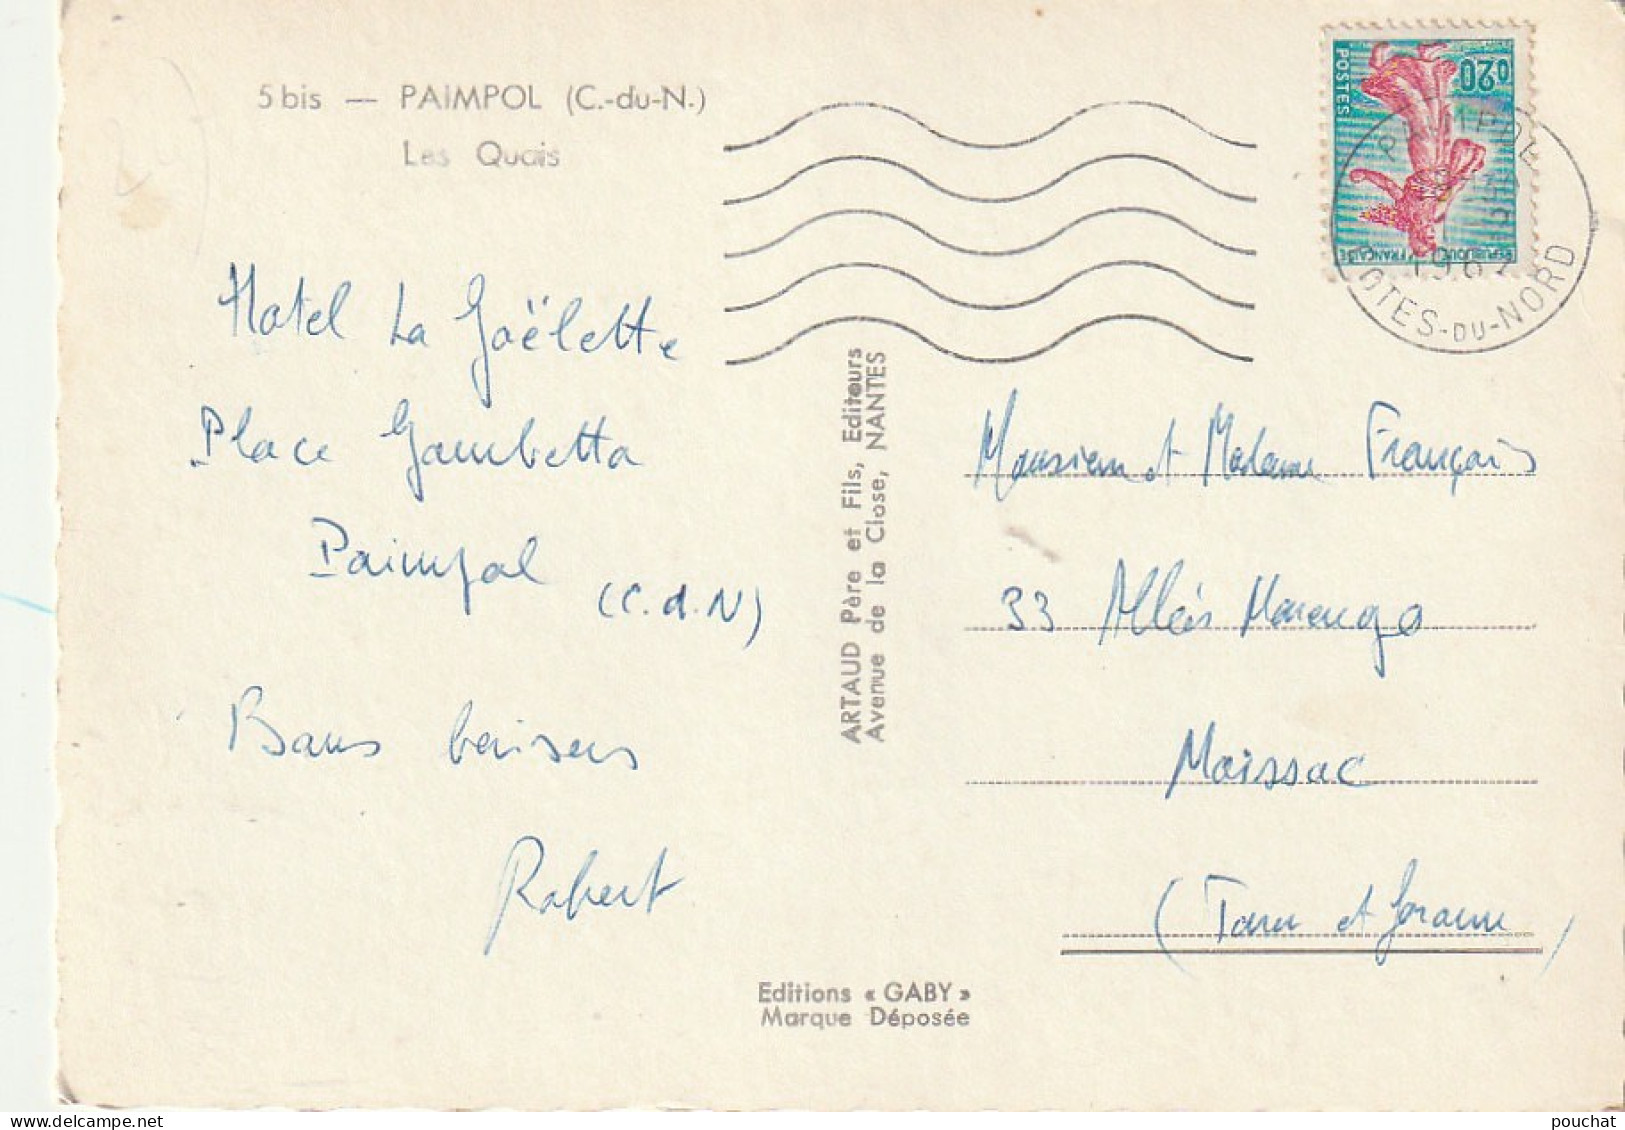 5 bis — PAIMPOL (C.-du-N.)
Les Quais
Hotel La Goëlette
Place Gambetta
Paimpol
(C.d.N)
Bons baisers
Robert
ARTAUD Père et Fils, Editeurs
Avenue de la Close, NANTES
Editions « GABY »
Marque Déposée
0,20
POSTES
REPUBLIQUE FRANÇAISE
PAIMPOL
CÔTES-DU-NORD
Monsieur et Madame François
33 Allées Marengo
Moissac
(Tarn et Garonne)
pouchat